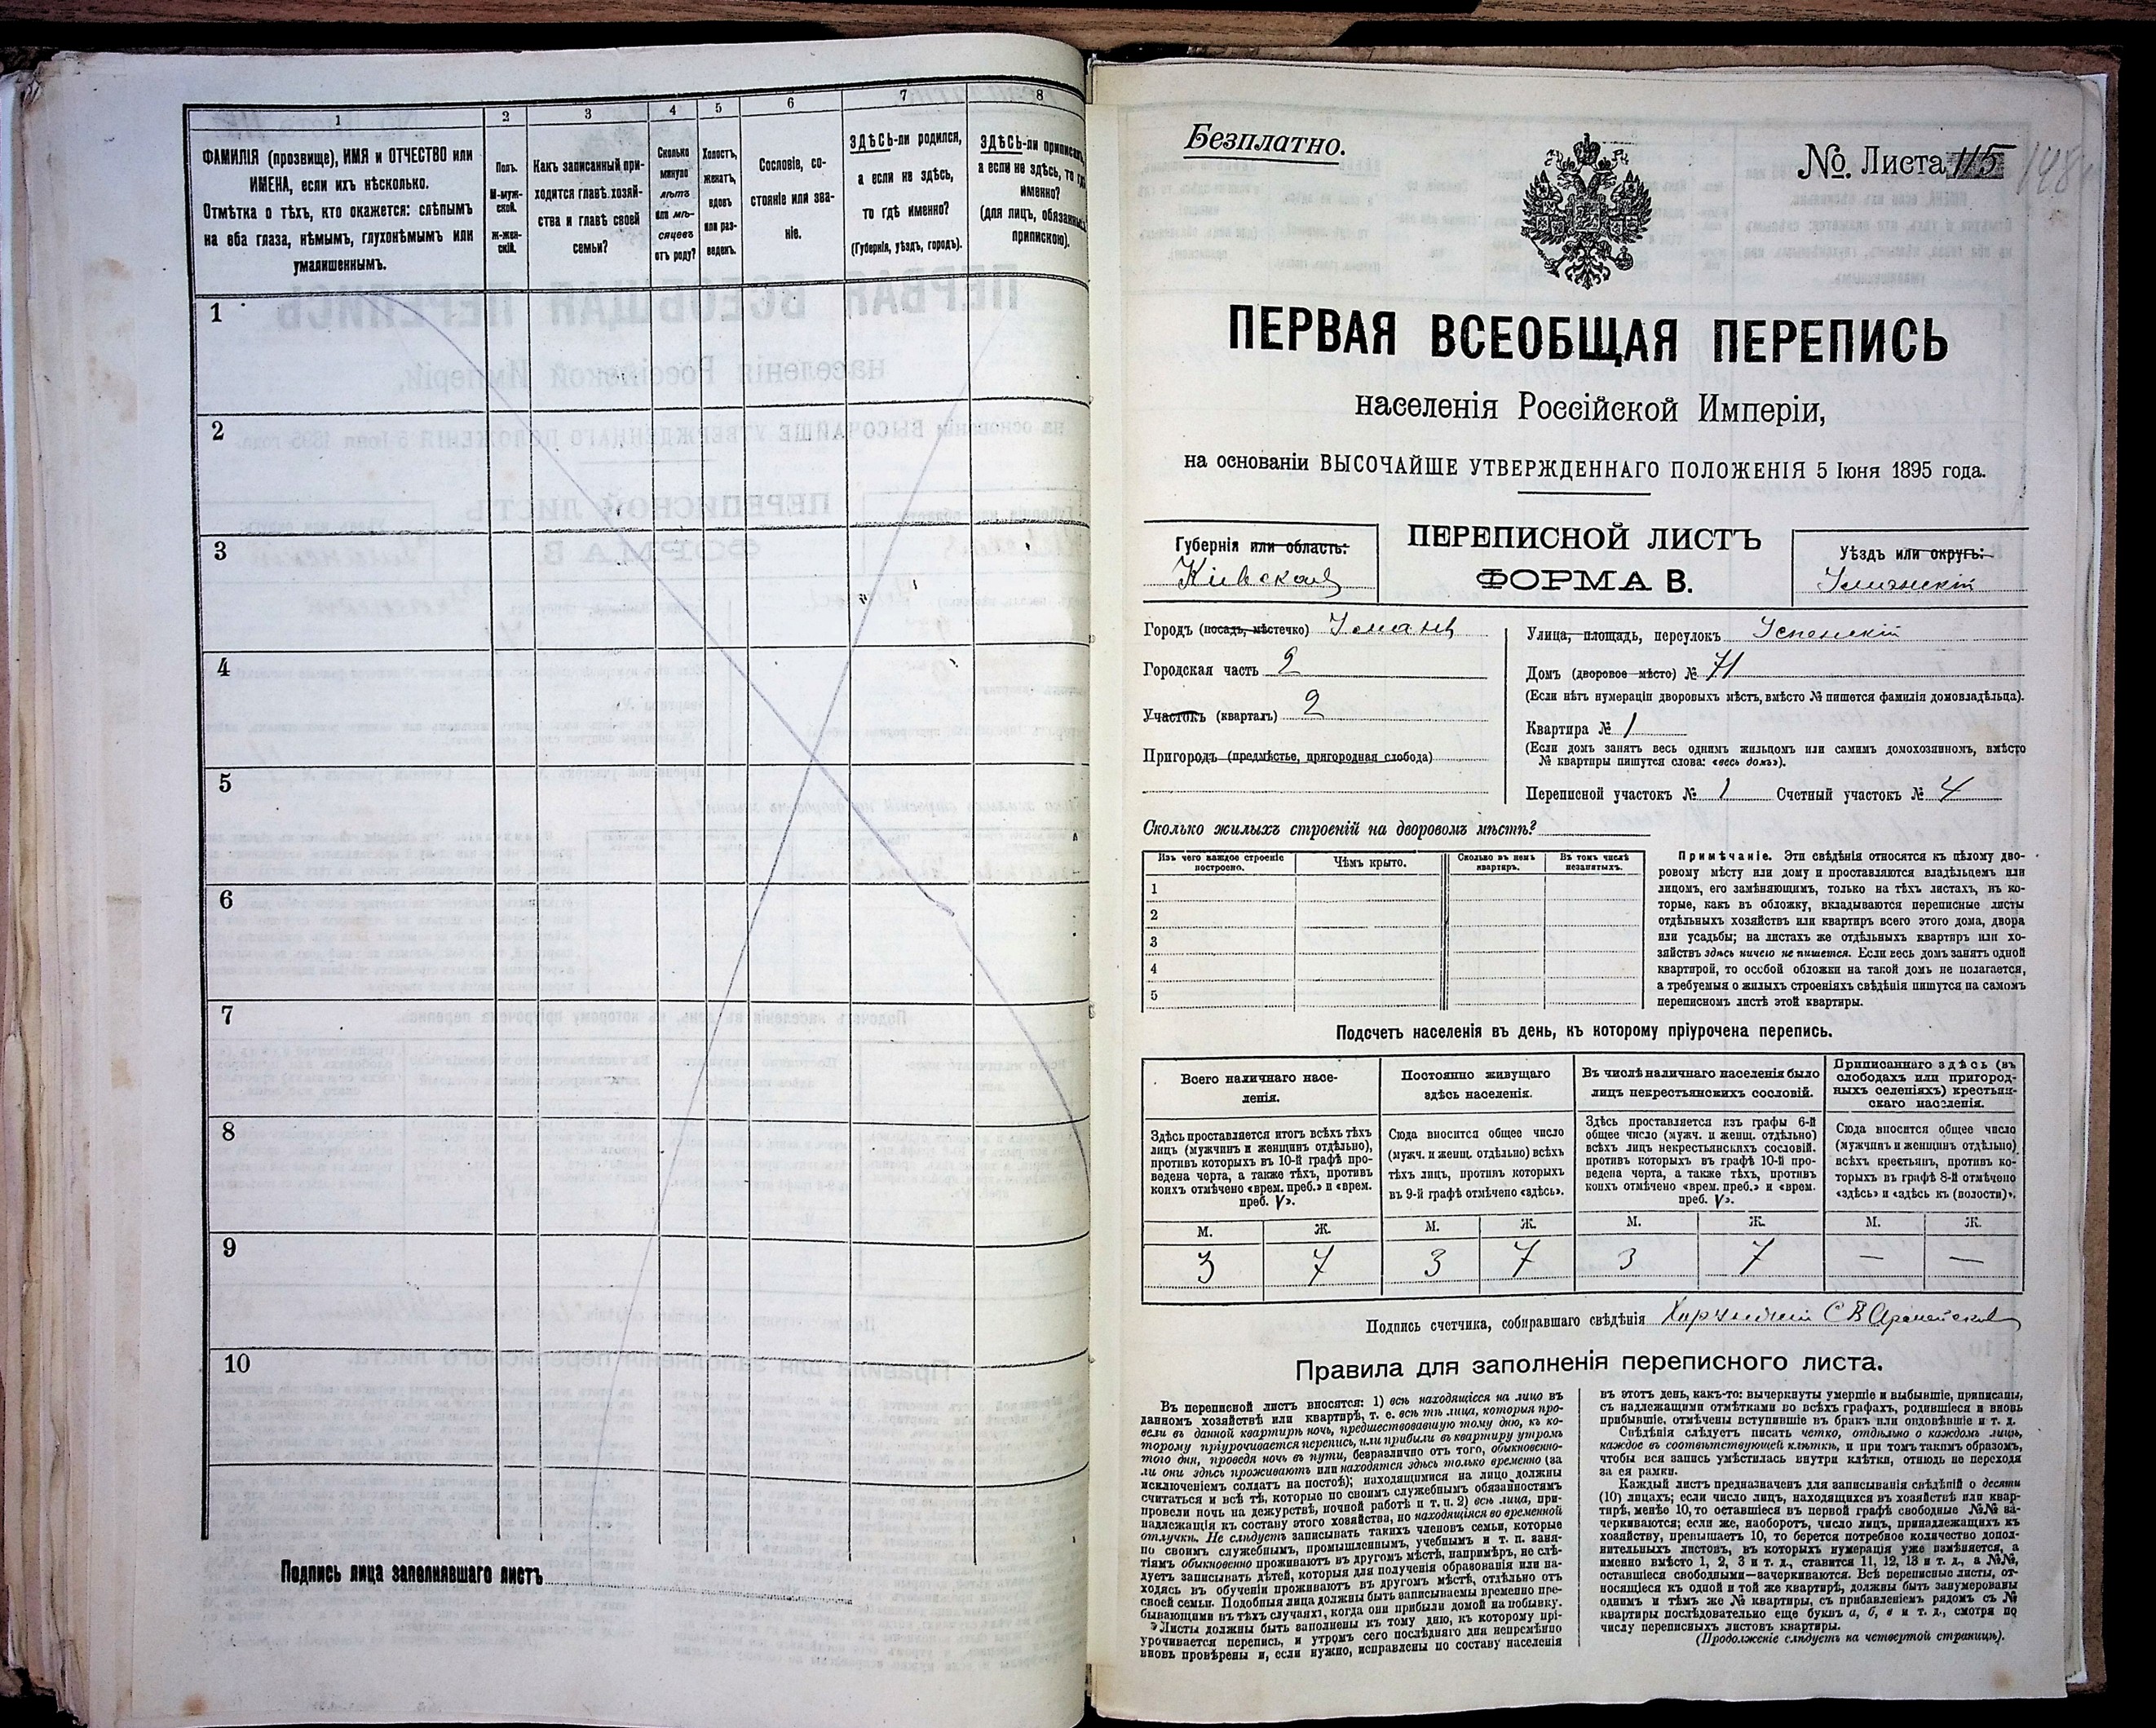 1
2
3
4
5
6
7
8
ФАМИЛІЯ (прозвище), ИМЯ и ОТЧЕСТВО или
ИМЕНА, если ихъ нѣсколько.
Отмѣтка о тѣхъ, кто окажется: слѣпымъ
на оба глаза, нѣмымъ, глухонѣмымъ или
умалишеннымъ.
Полъ.
М-муж-
ской.
Ж-жен-
скій.
Какъ записанный при-
ходится главѣ хозяй-
ства и главѣ своей
семьи?
Сколько
минуло
лѣтъ
или мѣ-
сяцевъ
отъ роду?
Холостъ,
женатъ,
вдовъ
или раз-
веденъ.
Сословіе, со-
стояніе или зва-
ніе.
ЗДѢСЬ-ли родился,
а если не здѣсь,
то гдѣ именно?
(Губернія, уѣздъ, городъ).
ЗДѢСЬ-ли приписанъ,
а если не здѣсь, то гдѣ
именно?
(для лицъ, обязанныхъ
припискою).
1
2
3
4
5
6
7
8
9
10
Подпись лица заполнявшаго листъ
Безплатно.
№ Листа 115
ПЕРВАЯ ВСЕОБЩАЯ ПЕРЕПИСЬ
населенія Россійской Имперіи,
на основаніи ВЫСОЧАЙШЕ УТВЕРЖДЕННАГО ПОЛОЖЕНІЯ 5 Іюня 1895 года.
Губернія или область:
Кіевская
ПЕРЕПИСНОЙ ЛИСТЪ
ФОРМА В.
Уѣздъ или округъ:
Уманскій
Городъ (посадъ, мѣстечко) Умань
Городская часть 2
Участокъ (кварталъ) 2
Пригородъ (предмѣстье, пригородная слобода)
Улица, площадь, переулокъ Успенскій
Домъ (дворовое мѣсто) № 71
(Если нѣтъ нумераціи дворовыхъ мѣстъ, вмѣсто № пишется фамилія домовладѣльца).
Квартира № 1
(Если домъ занятъ весь однимъ жильцомъ или самимъ домохозяиномъ, вмѣсто
№ квартиры пишутся слова: «весь домъ»).
Переписной участокъ № 1 Счетный участокъ № 4
Сколько жилыхъ строеній на дворовомъ мѣстѣ?
Изъ чего каждое строеніе
построено.
Чѣмъ крыто.
Сколько въ немъ
квартиръ.
Въ томъ числѣ
незанятыхъ.
1
2
3
4
5
Примѣчаніе. Эти свѣдѣнія относятся къ цѣлому дво-
ровому мѣсту или дому и проставляются владѣльцемъ или
лицомъ, его замѣняющимъ, только на тѣхъ листахъ, въ ко-
торые, какъ въ обложку, вкладываются переписные листы
отдѣльныхъ хозяйствъ или квартиръ всего этого дома, двора
или усадьбы; на листахъ же отдѣльныхъ квартиръ или хо-
зяйствъ здѣсь ничего не пишется. Если весь домъ занятъ одной
квартирой, то особой обложки на такой домъ не полагается,
а требуемыя о жилыхъ строеніяхъ свѣдѣнія пишутся на самомъ
переписномъ листѣ этой квартиры.
Подсчетъ населенія въ день, къ которому пріурочена перепись.
Всего наличнаго насе-
ленія.
Постоянно живущаго
здѣсь населенія.
Въ числѣ наличнаго населенія было
лицъ некрестьянскихъ сословій.
Приписаннаго здѣсь (въ
слободахъ или пригород-
ныхъ селеніяхъ) крестьян-
скаго населенія.
Здѣсь проставляется итогъ всѣхъ тѣхъ
лицъ (мужчинъ и женщинъ отдѣльно),
противъ которыхъ въ 10-й графѣ про-
ведена черта, а также тѣхъ, противъ
коихъ отмѣчено «врем. преб.» и «врем.
преб. V».
Сюда вносится общее число
(мужч. и женщ. отдѣльно) всѣхъ
тѣхъ лицъ, противъ которыхъ
въ 9-й графѣ отмѣчено «здѣсь».
Здѣсь проставляется изъ графы 6-й
общее число (мужч. и женщ. отдѣльно)
всѣхъ лицъ некрестьянскихъ сословій.
противъ которыхъ въ графѣ 10-й про-
ведена черта, а также тѣхъ, противъ
коихъ отмѣчено «врем. преб.» и «врем.
преб. V».
Сюда вносится общее число
(мужчинъ и женщинъ отдѣльно)
всѣхъ крестьянъ, противъ ко-
торыхъ въ графѣ 8-й отмѣчено
«здѣсь» и «здѣсь къ (волости)».
М. Ж. М. Ж. М. Ж. М. Ж.
3 7 3 7 3 7 — —
Подпись счетчика, собиравшаго свѣдѣнія
Правила для заполненія переписного листа.
Въ переписной листъ вносятся: 1) всѣ находящіеся на лицо въ
данномъ хозяйствѣ или квартирѣ, т. е. всѣ тѣ лица, которыя про-
вели въ данной квартирѣ ночь, предшествовавшую тому дню, къ ко-
торому пріурочивается перепись, или прибыли въ квартиру утромъ
того дня, проведя ночь въ пути, безразлично отъ того, обыкновенно-
ли они здѣсь проживаютъ или находятся здѣсь только временно (за
исключеніемъ солдатъ на постоѣ); находящимися на лицо должны
считаться и всѣ тѣ, которые по своимъ служебнымъ обязанностямъ
провели ночь на дежурствѣ, ночной работѣ и т. п. 2) всѣ лица, при-
надлежащія къ составу этого хозяйства, но находящіяся во временной
отлучкѣ. Не слѣдуетъ записывать такихъ членовъ семьи, которые
по своимъ служебнымъ, промышленнымъ, учебнымъ и т. п. заня-
тіямъ обыкновенно проживаютъ въ другомъ мѣстѣ, напримѣръ, не слѣ-
дуетъ записывать дѣтей, которыя для полученія образованія или на-
ходясь въ обученіи проживаютъ въ другомъ мѣстѣ, отдѣльно отъ
своей семьи. Подобныя лица должны быть записываемы временно пре-
бывающими въ тѣхъ случаяхъ, когда они прибыли домой на побывку.
Листы должны быть заполнены къ тому дню, къ которому прі-
урочивается перепись, и утромъ сего послѣдняго дня непремѣнно
вновь провѣрены и, если нужно, исправлены по составу населенія
въ этотъ день, какъ-то: вычеркнуты умершіе и выбывшіе, приписаны,
съ надлежащими отмѣтками во всѣхъ графахъ, родившіеся и вновь
прибывшіе, отмѣчены вступившіе въ бракъ или овдовѣвшіе и т. д.
Свѣдѣнія слѣдуетъ писать четко, отдѣльно о каждомъ лицѣ,
каждое въ соотвѣтствующей клѣткѣ, и при томъ такимъ образомъ,
чтобы вся запись умѣстилась внутри клѣтки, отнюдь не переходя
за ея рамки.
Каждый листъ предназначенъ для записыванія свѣдѣній о десяти
(10) лицахъ; если число лицъ, находящихся въ хозяйствѣ или квар-
тирѣ, менѣе 10, то оставшіеся въ первой графѣ свободные №№ за-
черкиваются; если же, наоборотъ, число лицъ, принадлежащихъ къ
хозяйству, превышаетъ 10, то берется потребное количество допол-
нительныхъ листовъ, въ которыхъ нумерація уже измѣняется, а
именно вмѣсто 1, 2, 3 и т. д., ставится 11, 12, 13 и т. д., а №№,
оставшіеся свободными—зачеркиваются. Всѣ переписные листы, от-
носящіеся къ одной и той же квартирѣ, должны быть занумерованы
однимъ и тѣмъ же № квартиры, съ прибавленіемъ рядомъ съ №
квартиры послѣдовательно еще буквъ а, б, в и т. д., смотря по
числу переписныхъ листовъ квартиры.
(Продолженіе слѣдуетъ на четвертой страницѣ).